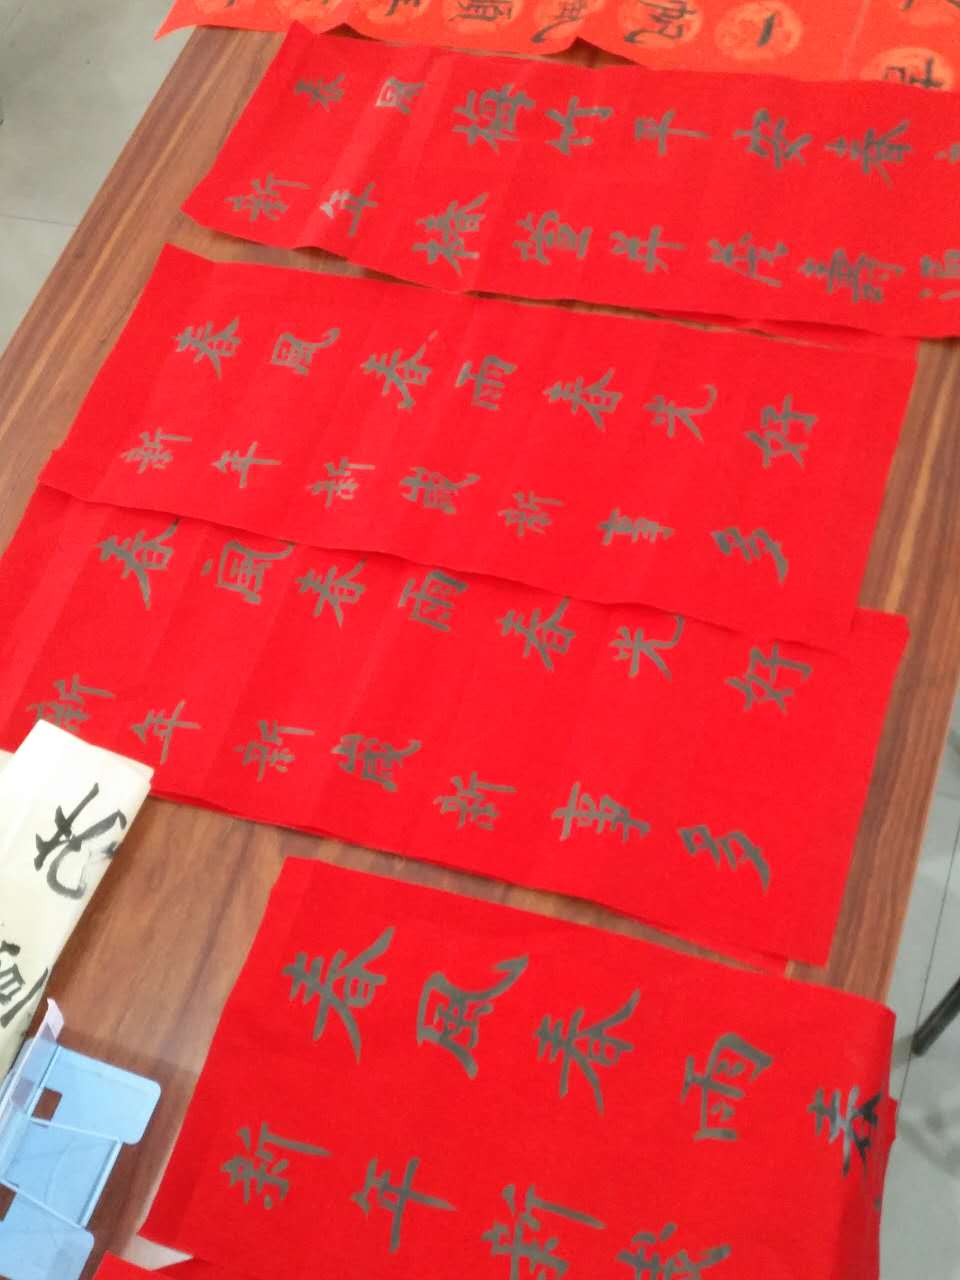 一帆風順
春風梅竹平安春
新年椿萱并茂壽
春風春雨春光好
新年新歲新事多
春風春雨春光好
新年新歲新事多
春風春雨春
新年新歲